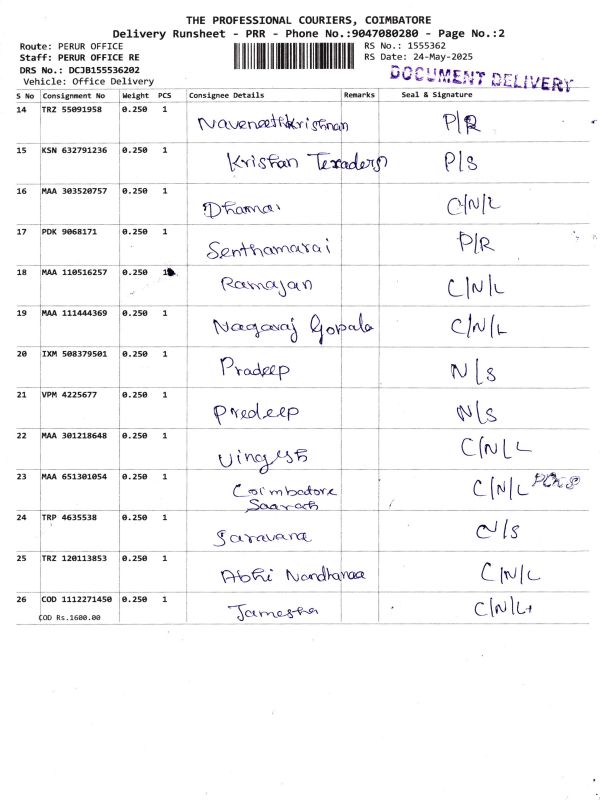 THE PROFESSIONAL COURIERS, COIMBATORE
Delivery Runsheet - PRR - Phone No.:9047080280 - Page No.:2
Route: PERUR OFFICE RS No.: 1555362
Staff: PERUR OFFICE RE RS Date: 24-May-2025
DRS No.: DCJB155536202 DOCUMENT DELIVERY
Vehicle: Office Delivery
S No Consignment No Weight PCS Consignee Details Remarks Seal & Signature
14 TRZ 55091958 0.250 1 Navaneethkrishnan P/R
15 KSN 632791236 0.250 1 Krishan Texraders P/S
16 MAA 303520757 0.250 1 Dhamai C/N/L
17 PDK 9068171 0.250 1 Senthamarai P/R
18 MAA 110516257 0.250 1 Ramajan C/N/L
19 MAA 111444369 0.250 1 Nagaraj Gopala C/N/L
20 IXM 508379501 0.250 1 Pradeep N/S
21 VPM 4225677 0.250 1 Predeep N/S
22 MAA 301218648 0.250 1 C/N/L
23 MAA 651301054 0.250 1 Coimbatore C/N/L
24 TRP 4635538 0.250 1 Saravana N/S
25 TRZ 120113853 0.250 1 Abhi Nandhanaa C/N/L
26 COD 1112271450 0.250 1 Jamesha C/N/L
COD Rs.1600.00